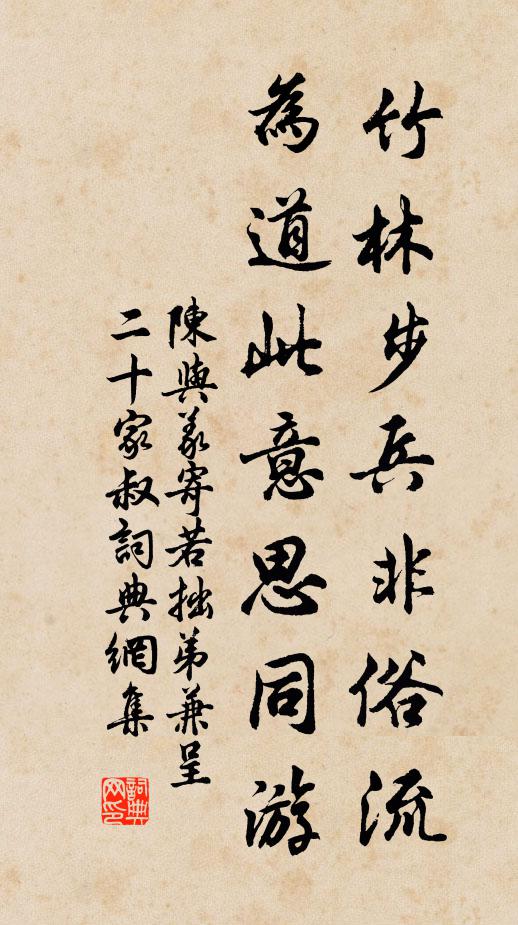 竹林步兵非俗流
為道此意思同游
陳與義寄若拙弟兼呈
二十家叔詞典網集
詞典
网印